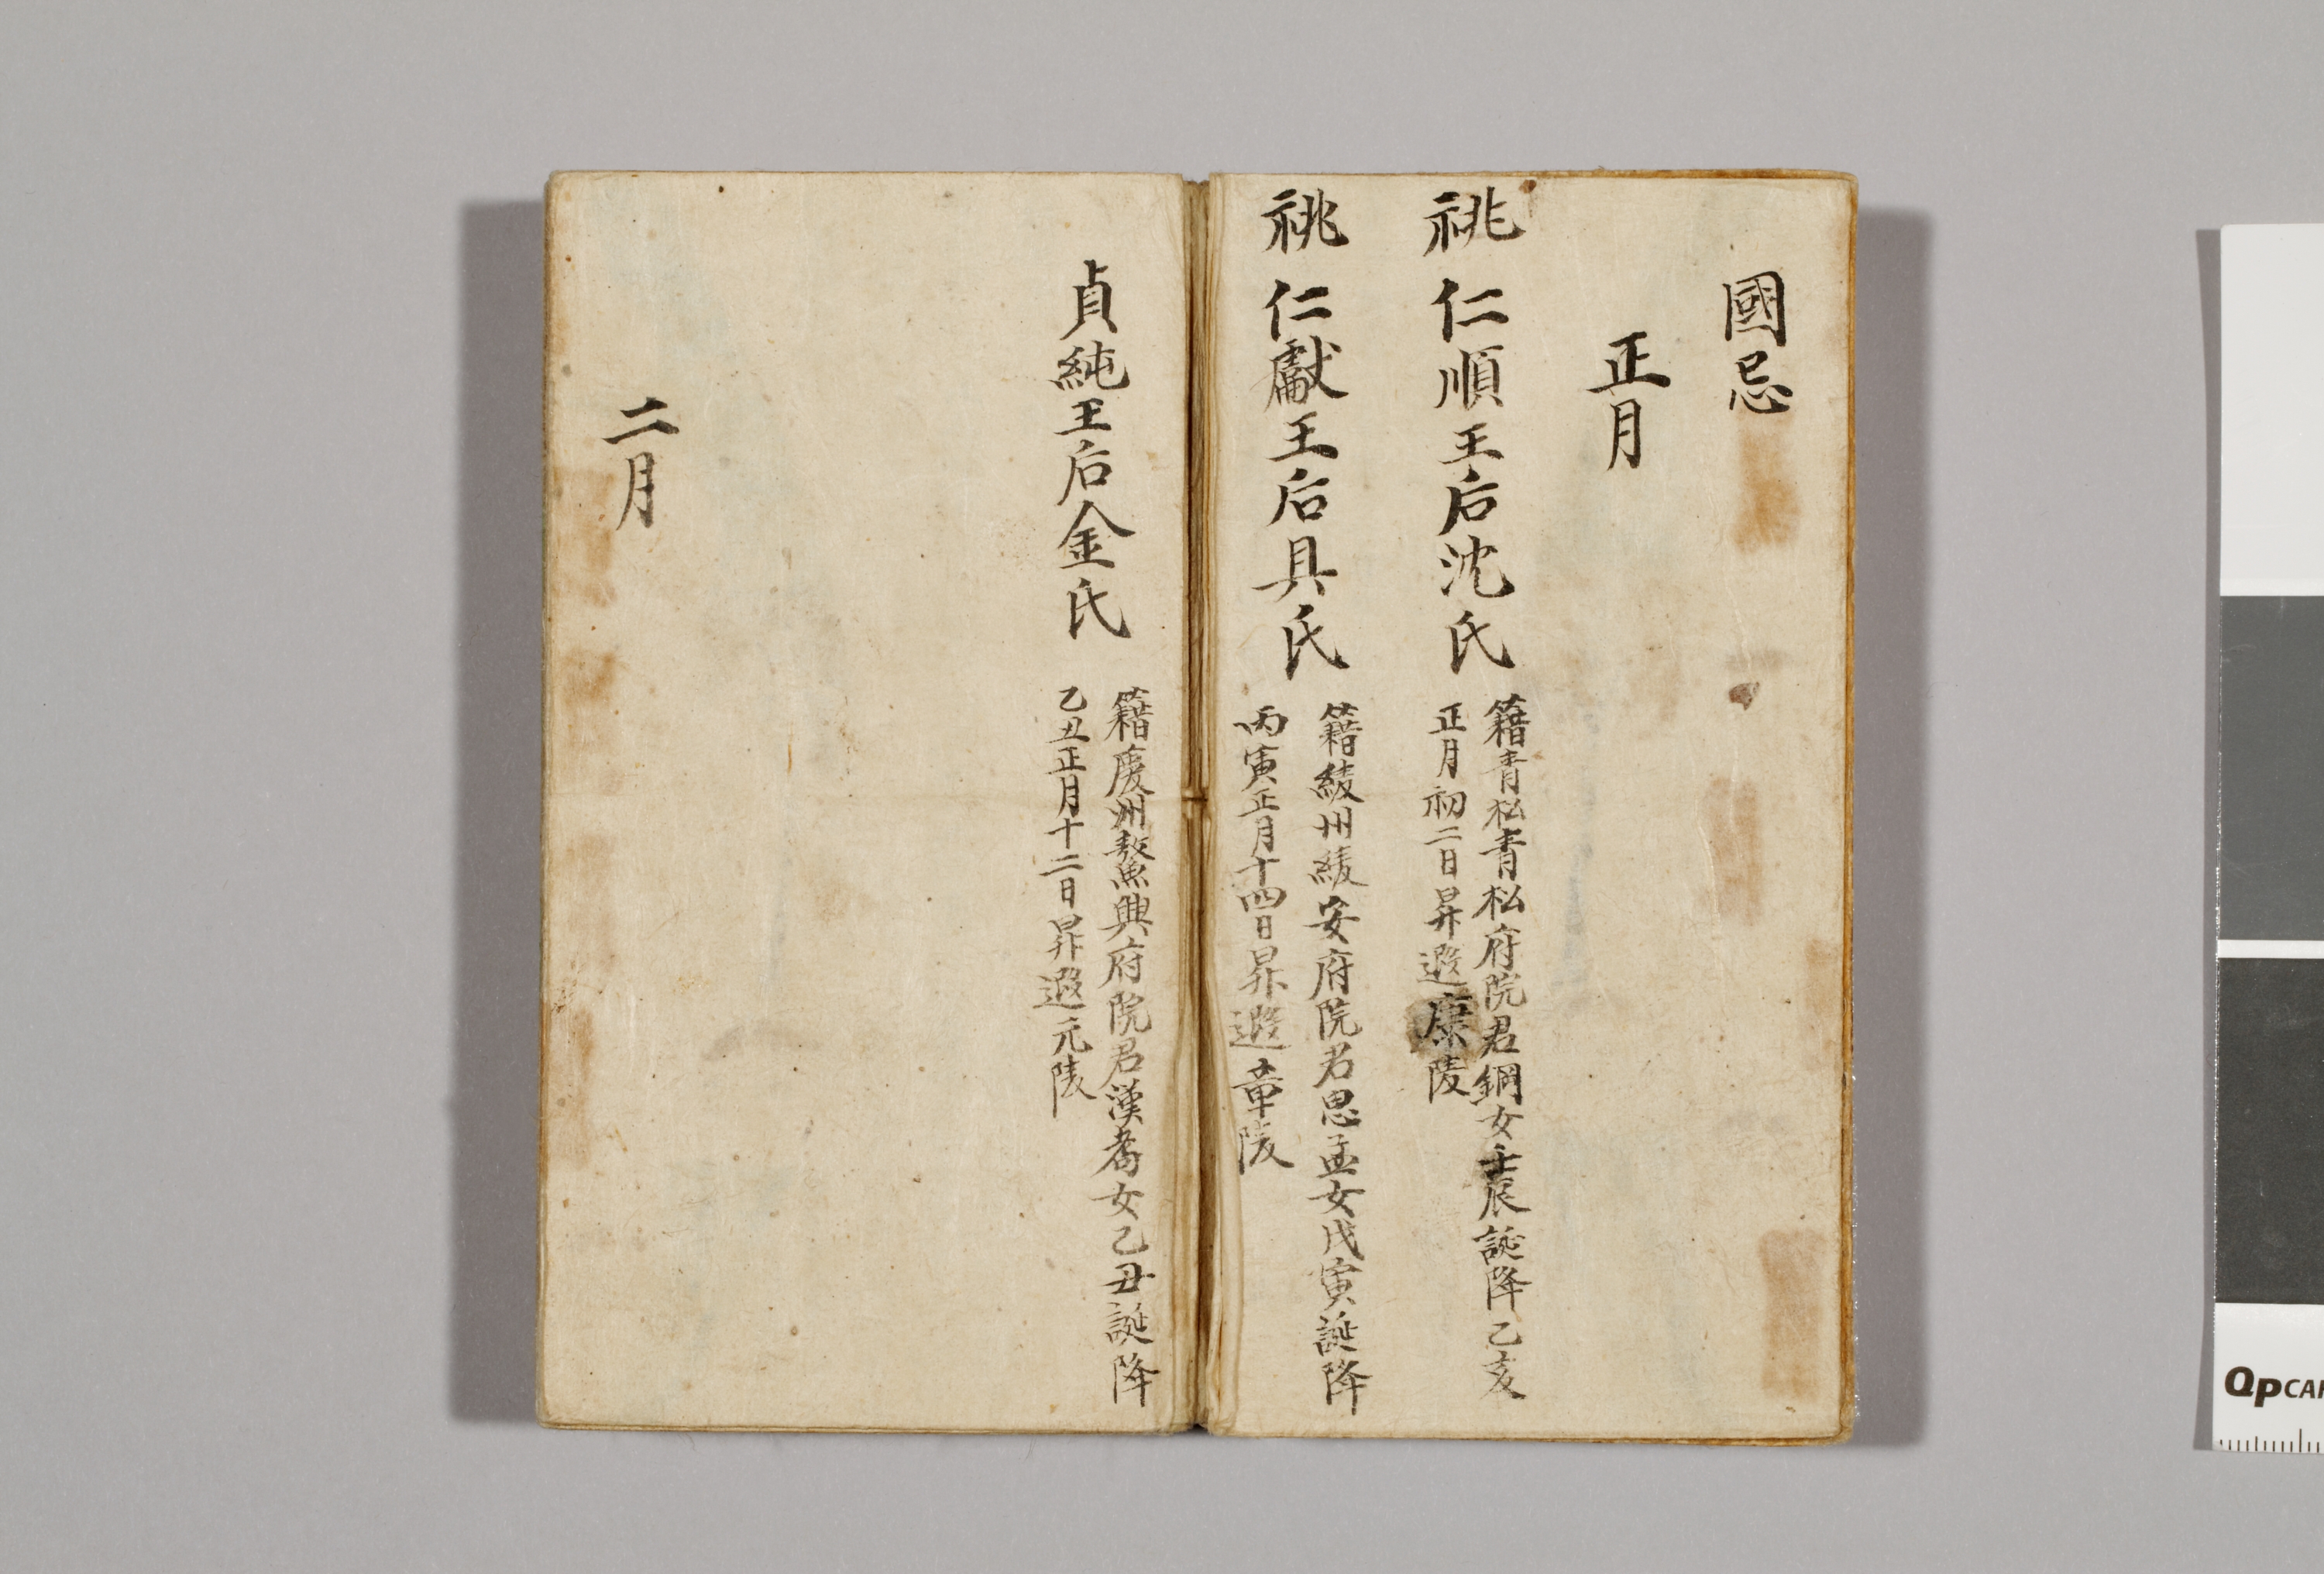 國忌
正月
祧 仁順王后沈氏
籍青松青松府院君鋼女壬辰誕降乙亥
正月初二日昇遐康陵
祧 仁獻王后具氏
籍綾州綾安府院君思孟女戊寅誕降
丙寅正月十四日昇遐章陵
貞純王后金氏
籍慶州鰲興府院君漢耉女乙丑誕降
乙丑正月十二日昇遐元陵
二月
QPCAR